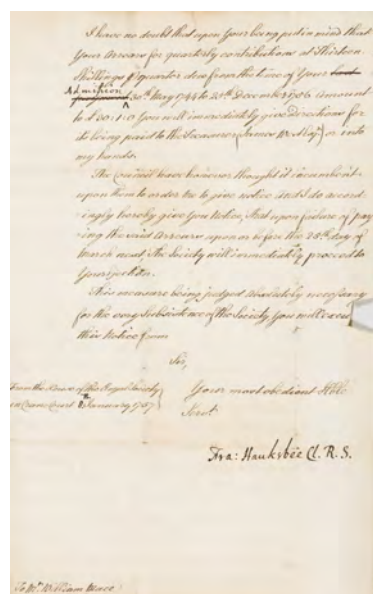 I have no doubt that upon Your being put in mind that
Your Arrears for quarterly contributions at Thirteen
Shillings quarter due from the time of Your
Admission
30th May 1744 to 25th December 1756 amount
to £ 30:1:0 You will immediately give directions for
its being paid to the Treasurer (James West Esqr.) or into
my hands.
The Council have however thought it incumbent
upon them to order me to give notice and I do accord
ingly hereby give You Notice, that upon failure of pay
ing the said Arrears upon or before the 25th day of
March next the Society will immediately proceed to
Your ejection.
This measure being judged absolutely necessary
for the very Subsistence of the Society, You will excuse
this Notice from
Sir,
From the House of the Royal Society
in Crane Court January 1757
Your most obedient Hble
Servt.
Fra: Hauksbee Cl. R. S.
To Mr. William